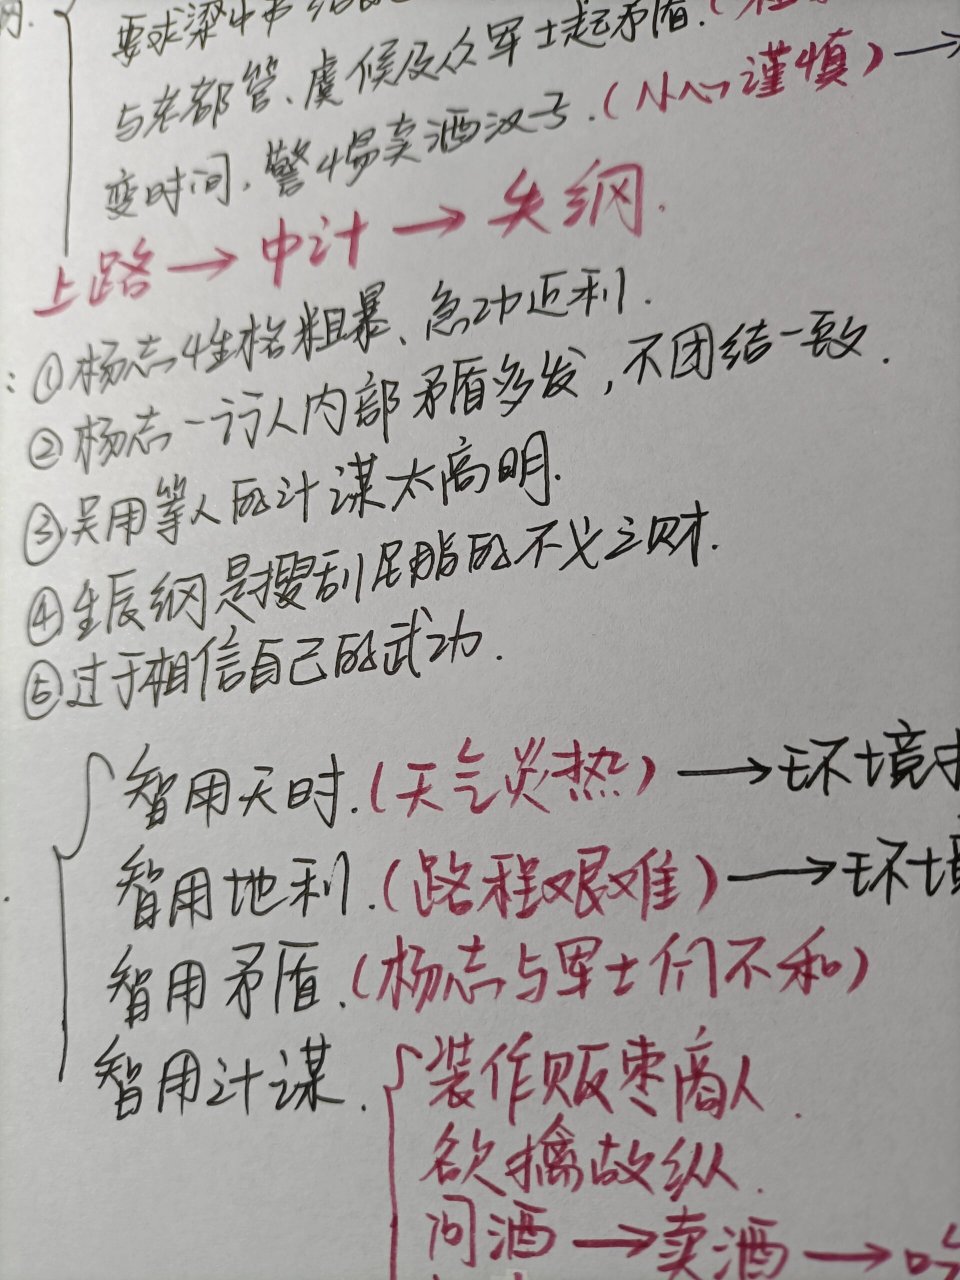 要求梁中书
与老都管、虞候及众军士起矛盾.
变时间,警惕卖酒汉子.(小心谨慎)→
上路→中计→失纲.
①杨志性格粗暴、急功近利.
②杨志一行人内部矛盾多发,不团结一致.
③吴用等人的计谋太高明.
④生辰纲是搜刮民脂的不义之财.
⑤过于相信自己的武功.
智用天时.(天气炎热)→环境
智用地利.(路程艰难)→环境
智用矛盾.(杨志与军士们不和)
智用计谋.
装作贩枣商人.
欲擒故纵.
问酒→卖酒→